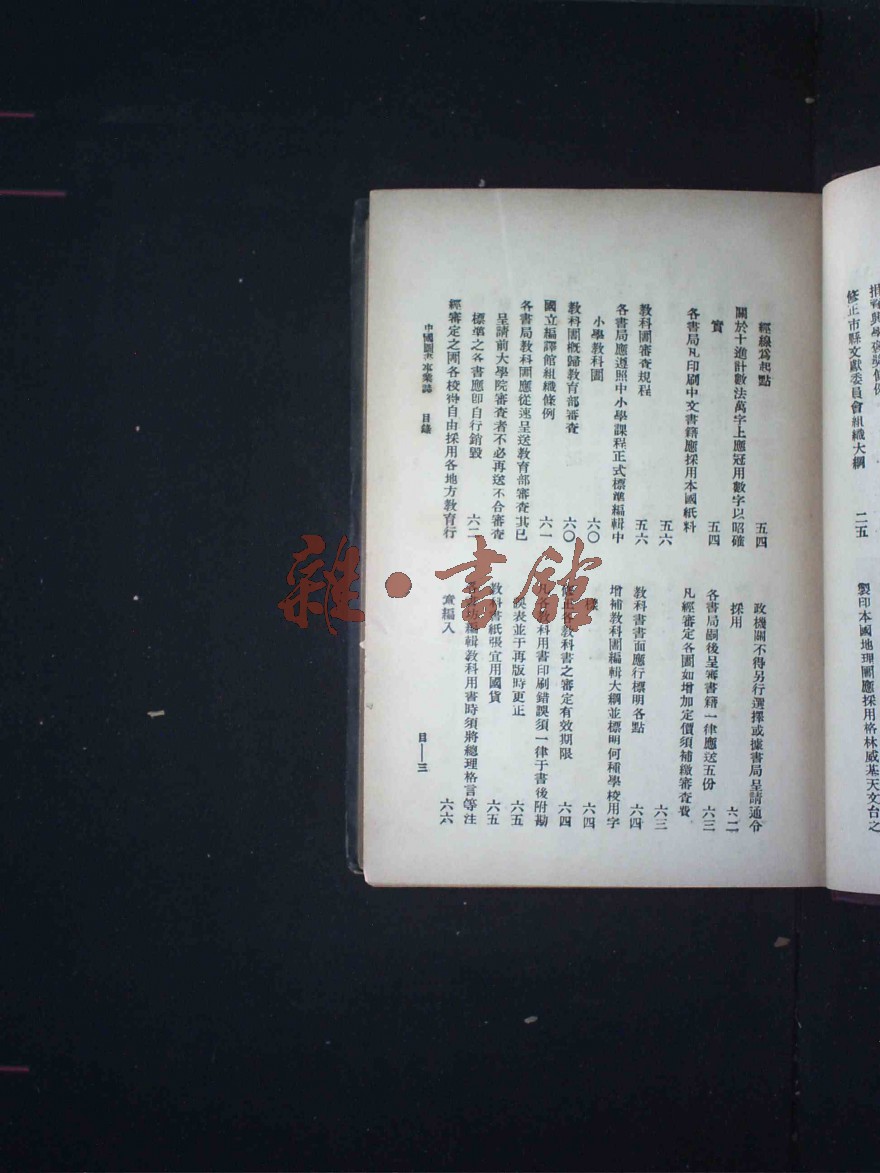 修正市縣文獻委員會組織大綱 二五
製印本國地理圖應採用格林威基天文台之
經線爲起點 五四
關於十進計數法萬字上應冠用數字以昭確
實 五四
各書局凡印刷中文書籍應採用本國紙料
五六
教科圕審查規程 五六
各書局應遵照中小學課程正式標準編輯中
小學教科圕 六〇
教科圕概歸教育部審查 六〇
國立編譯館組織條例 六一
各書局教科圕應從速呈送教育部審查其已
呈請前大學院審查者不必再送不合審查
標準之各書應即自行銷毀 六二
經審定之圕各校得自由採用各地方教育行
政機關不得另行選擇或據書局呈請通令
採用 六二
各書局嗣後呈審書籍一律應送五份 六三
凡經審定各圕如增加定價須補繳審查費
六三
教科書書面應行標明各點 六四
增補教科圕編輯大綱並標明何種學校用字
樣 六四
修正各教科書之審定有效期限 六四
凡各教科用書印刷錯誤須一律于書後附勘
誤表並于再版時更正 六五
教科書紙張宜用國貨 六五
編輯教科用書時須將總理格言等注
意編入 六六
中國圖書事業誌 目錄
目—三
雜·書館